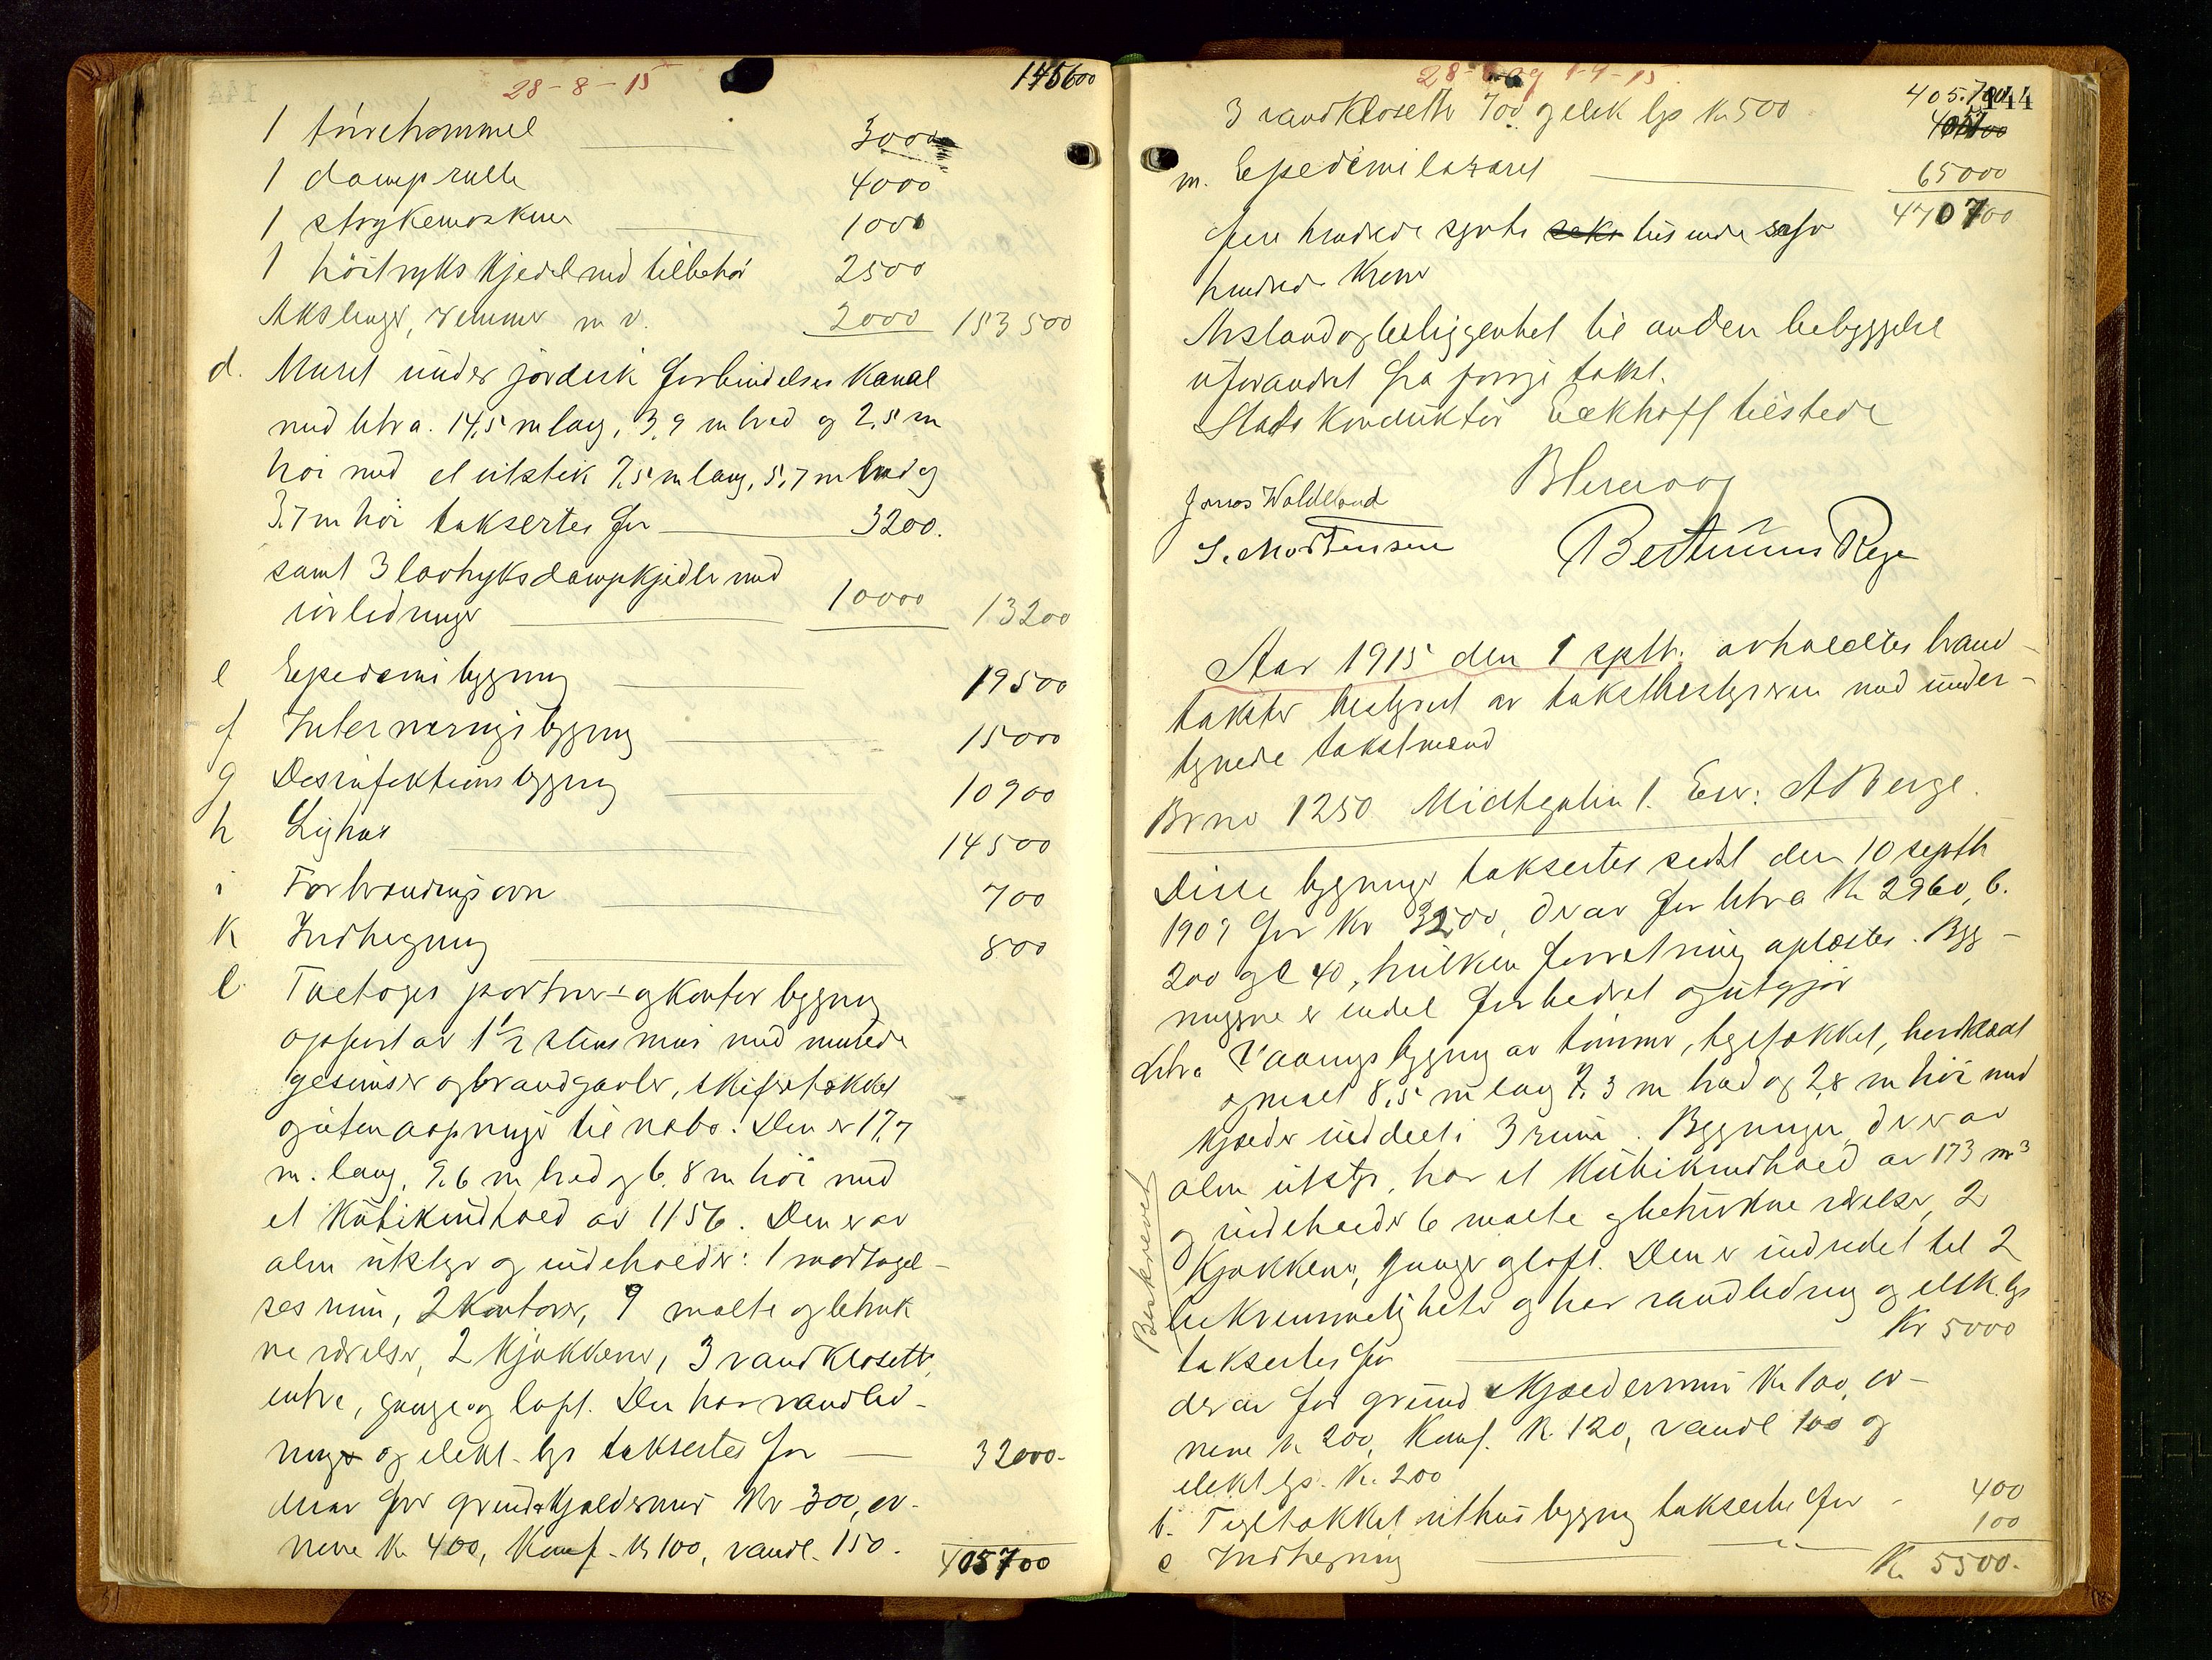 28-8-15
145600
1 törretrommel 3000
1 damprulle 4000
1 strykemaskine 1000
1 höitryks kjedel med tilbehör 2500
Akslinger, remmer m v. 2000 153500
d. Muret underjordisk forbindelses kanal
med litra a. 14,5 m lang, 3,9 m bred og 2,5 m
höi med et utstik 7,5 m lang, 5,7 m bred og
3,7 m höi taksertes for 3200.
samt 3 lavtryksdampkjedler med
rörledninger 10000 13200
e Epedemibygning 19500
f Interneringsbygning 15000
g Desinfektionsbygning 10900
h Lighus 14500
i Forbrændingsovn 700
k Indhegning 800
l. Toetages portner- og kontorbygning
opfört av 1 1/2 stens mur med murede
gesimser og brandgavler, skifertækket
og uten aapninger til nabo. Den er 17,7
m. lang, 9,6 m bred og 6,8 m höi med
et kubikindhold av 1156. Den er av
alm utstyr og indeholder: 1 modtagel-
ses rum, 2 kontorer, 9 malte og betruk
ne værelser, 2 kjökkener, 3 vandklosetter,
entre, gange og loft. Den har vandled-
ning og elekt. lys taksertes for 32000.
derav for grund & kjeldermur Kr 300, ov-
nene Kr 400, Komf. Kr 100, vandl. 150.
405700
28-8 og 1-9-15.
144
3 vandklosetter 700 og elek lys Kr 500
405.700
m. Epedemilazaret 65000
470700
Fire hundrede sytti tusinde syv
hundrede Kroner
Avstand og beliggenhet til anden bebyggelse
uforandret fra forrige takst.
Stadskonduktör Eckhoff tilstede
Jonas Waldeland
S. Mortensen
Bertinius Rege
Aar 1915 den 1 septbr. avholdtes brand-
takster bestyret av takstbestyreren med under-
tegnede takstmænd
Brno 1250 Midtgaten 1. Eier: A Berge.
Disse bygninger taksertes sidst den 10 septbr
1909 for Kr 3200, derav for litra a Kr 2960, b.
200 og c 40, hvilken forretning oplæstes. Byg-
ningene er endel forbedret og utgjör
Litra a Vaaningsbygning av tömmer, teglstækket, bordklædt
og malt 8,5 m lang 7,3 m bred og 2,8 m höi med
kjelder inddelt i 3 rum. Bygningen, der er av
alm utstyr, har et kubikindhold av 173 m3
og indeholder 6 malte og betrukne værelser, 2
kjökkener, gange og loft. Den er indredet til 2
bekvemmeligheter og har vandledning og elek. lys
taksertes for Kr 5000
derav for grund & kjeldermur Kr 100, ov-
nene Kr 200, Komf. Kr 120, vandl 100 og
elekt lys. Kr. 200
b. Tegltækket uthusbygning taksertes for 400
c Indhegning 100
Kr. 5500.
Beskrevet